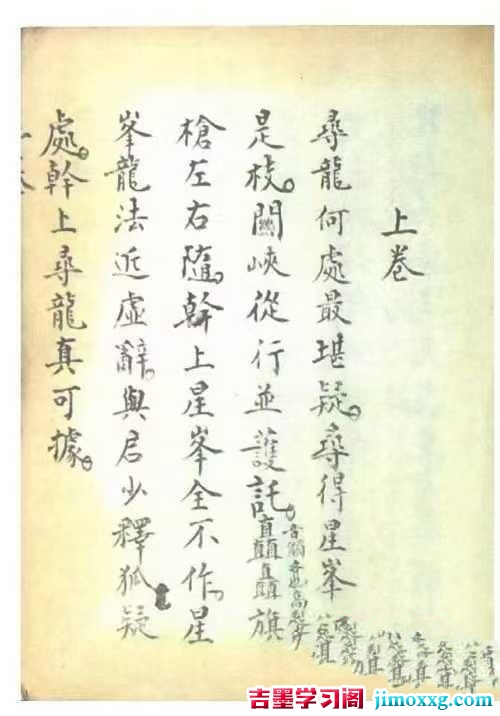 上卷
尋龍何處最堪疑。尋得星峯
是枝。關峽從行並護託。矗矗旗
槍左右隨。幹上星峯全不作。星
峯龍法近虛辭。與君少釋狐疑
處。幹上尋龍真可據。
吉墨学习阁 jimoxxg.com